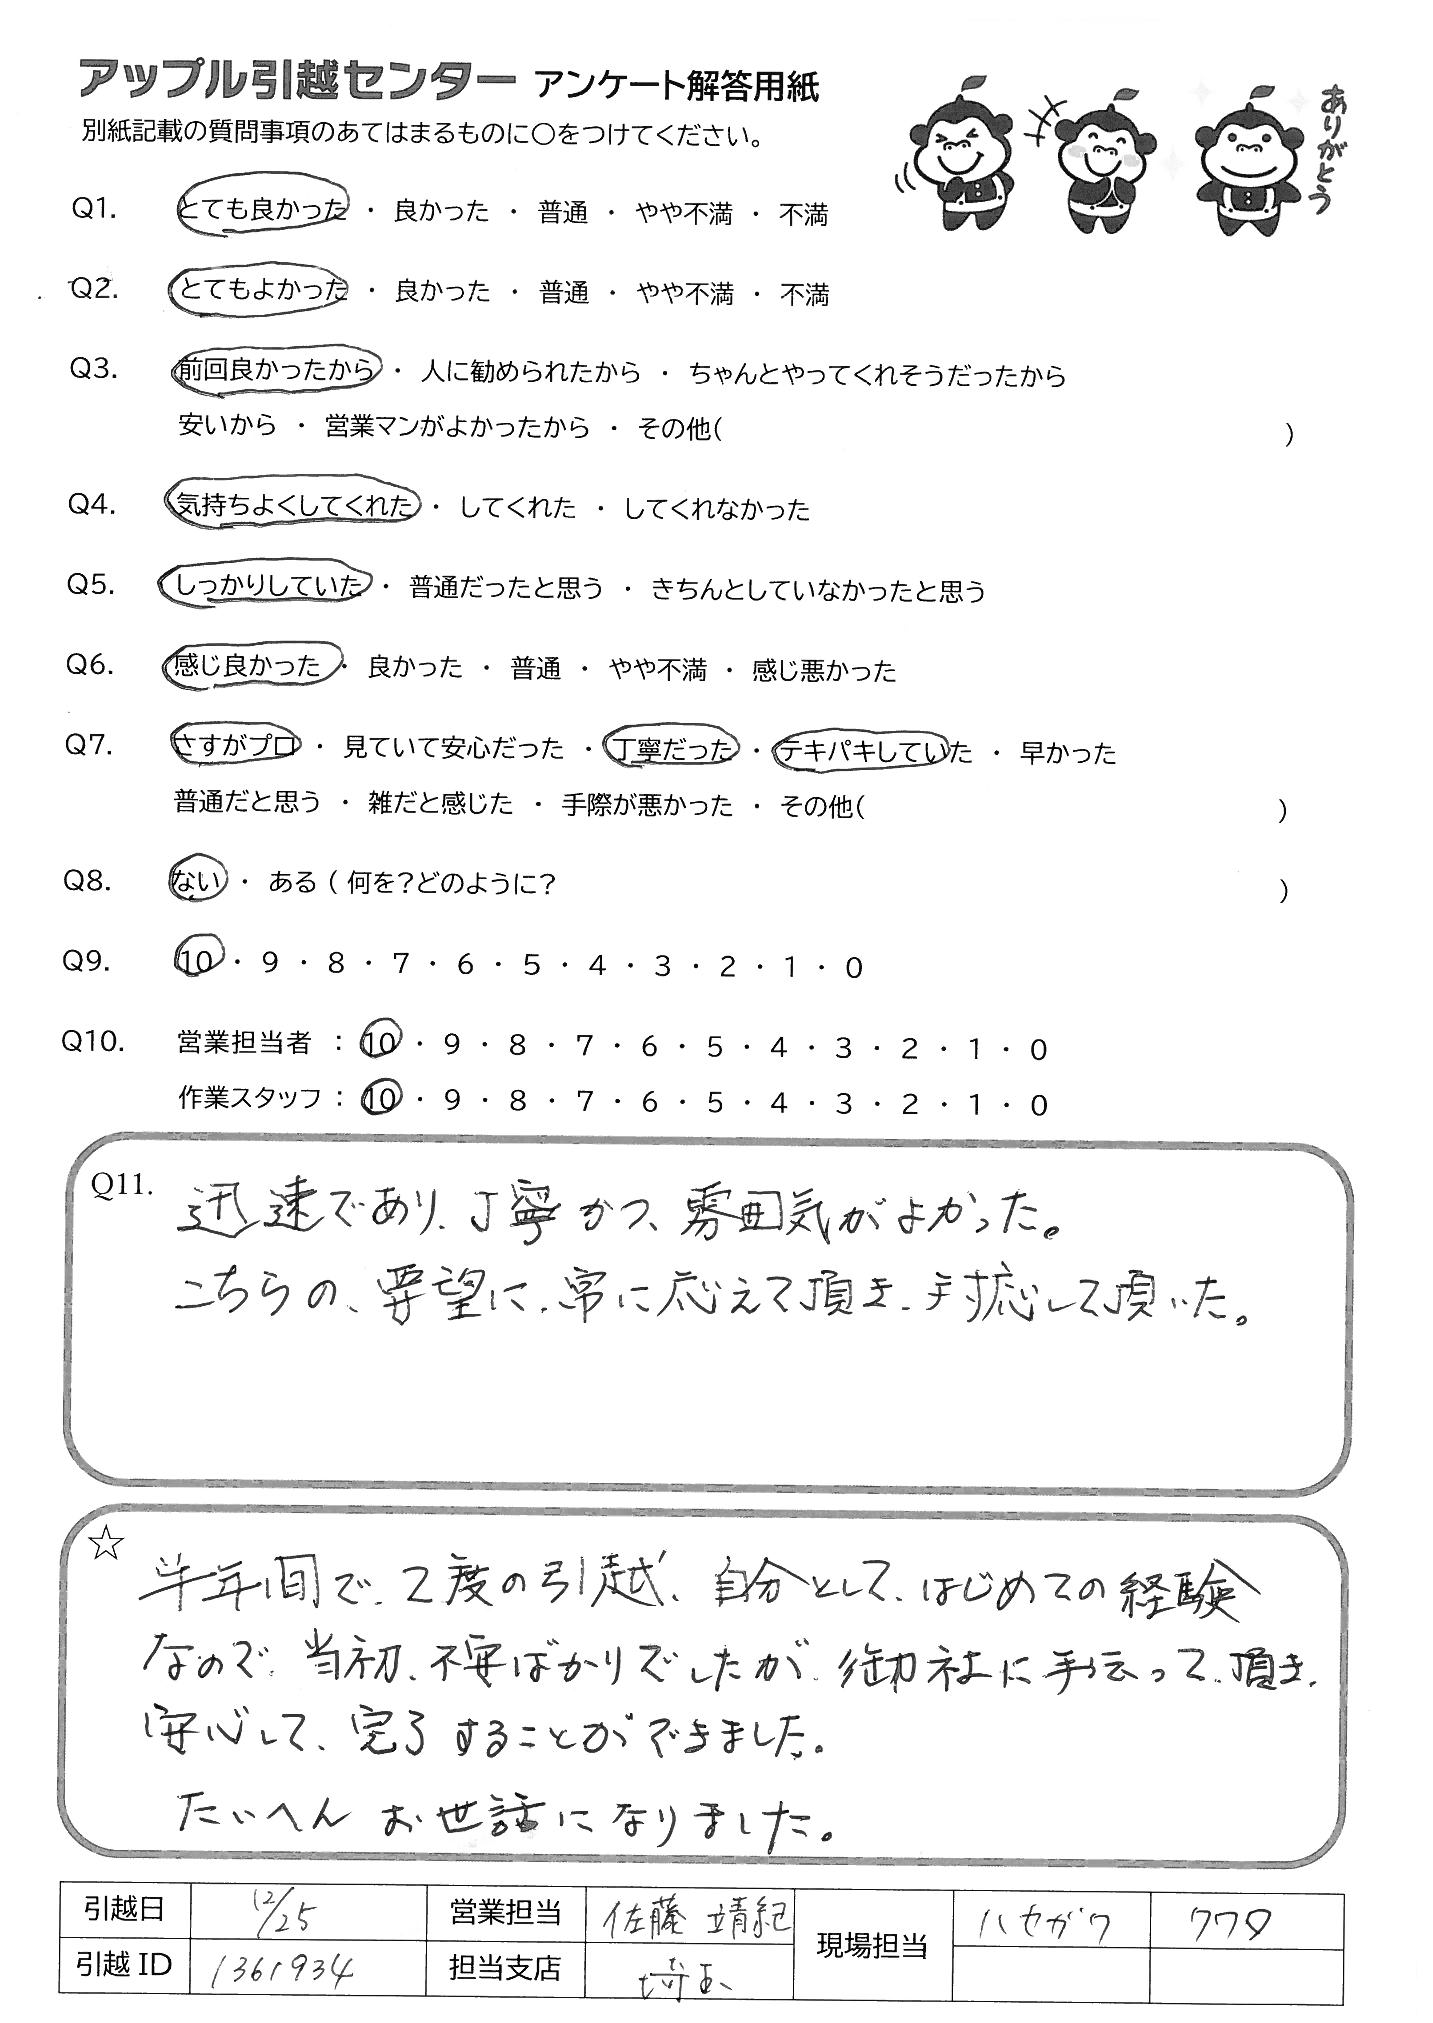 アップル引越センター アンケート解答用紙
別紙記載の質問事項のあてはまるものに○をつけてください。
ありがとう
Q1. とても良かった ・ 良かった ・ 普通 ・ やや不満 ・ 不満
Q2. とてもよかった ・ 良かった ・ 普通 ・ やや不満 ・ 不満
Q3. 前回良かったから ・ 人に勧められたから ・ ちゃんとやってくれそうだったから
安いから ・ 営業マンがよかったから ・ その他( )
Q4. 気持ちよくしてくれた ・ してくれた ・ してくれなかった
Q5. しっかりしていた ・ 普通だったと思う ・ きちんとしていなかったと思う
Q6. 感じ良かった ・ 良かった ・ 普通 ・ やや不満 ・ 感じ悪かった
Q7. さすがプロ ・ 見ていて安心だった ・ 丁寧だった ・ テキパキしていた ・ 早かった
普通だと思う ・ 雑だと感じた ・ 手際が悪かった ・ その他( )
Q8. ない ・ ある ( 何を?どのように? )
Q9. 10 ・ 9 ・ 8 ・ 7 ・ 6 ・ 5 ・ 4 ・ 3 ・ 2 ・ 1 ・ 0
Q10. 営業担当者 : 10 ・ 9 ・ 8 ・ 7 ・ 6 ・ 5 ・ 4 ・ 3 ・ 2 ・ 1 ・ 0
作業スタッフ : 10 ・ 9 ・ 8 ・ 7 ・ 6 ・ 5 ・ 4 ・ 3 ・ 2 ・ 1 ・ 0
Q11. 迅速であり、丁寧かつ、雰囲気がよかった。
こちらの、要望に、常に応えて頂き、対応して頂いた。
☆ 半年間で、2度の引越、自分として、はじめての経験
なので、当初、不安ばかりでしたが、御社に手伝って、頂き、
安心して、完了することができました。
たいへん お世話になりました。
引越日 12/25 営業担当 佐藤 靖紀 現場担当 ハセガワ
引越ID 1361934 担当支店 埼玉